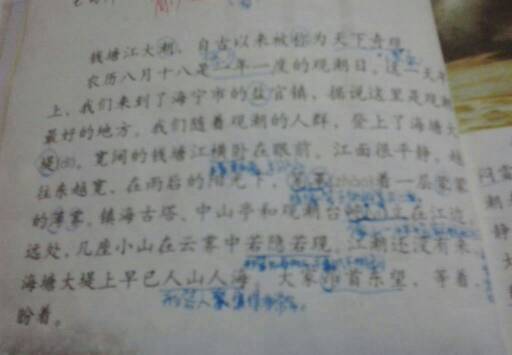 钱塘江大潮，自古以来被称为天下奇观。
农历八月十八是一年一度的观潮日。这一天早
上，我们来到了海宁市的盐官镇，据说这里是观潮
最好的地方。我们随着观潮的人群，登上了海塘大
堤(dī)。宽阔的钱塘江横卧在眼前。江面很平静，越
往东越宽，在雨后的阳光下，笼罩(zhào)着一层蒙蒙
的薄雾。镇海古塔、中山亭和观潮台屹(yì)立在江边。
远处，几座小山在云雾中若隐若现。江潮还没有来，
海塘大堤上早已人山人海。大家昂首东望，等着，
盼着。